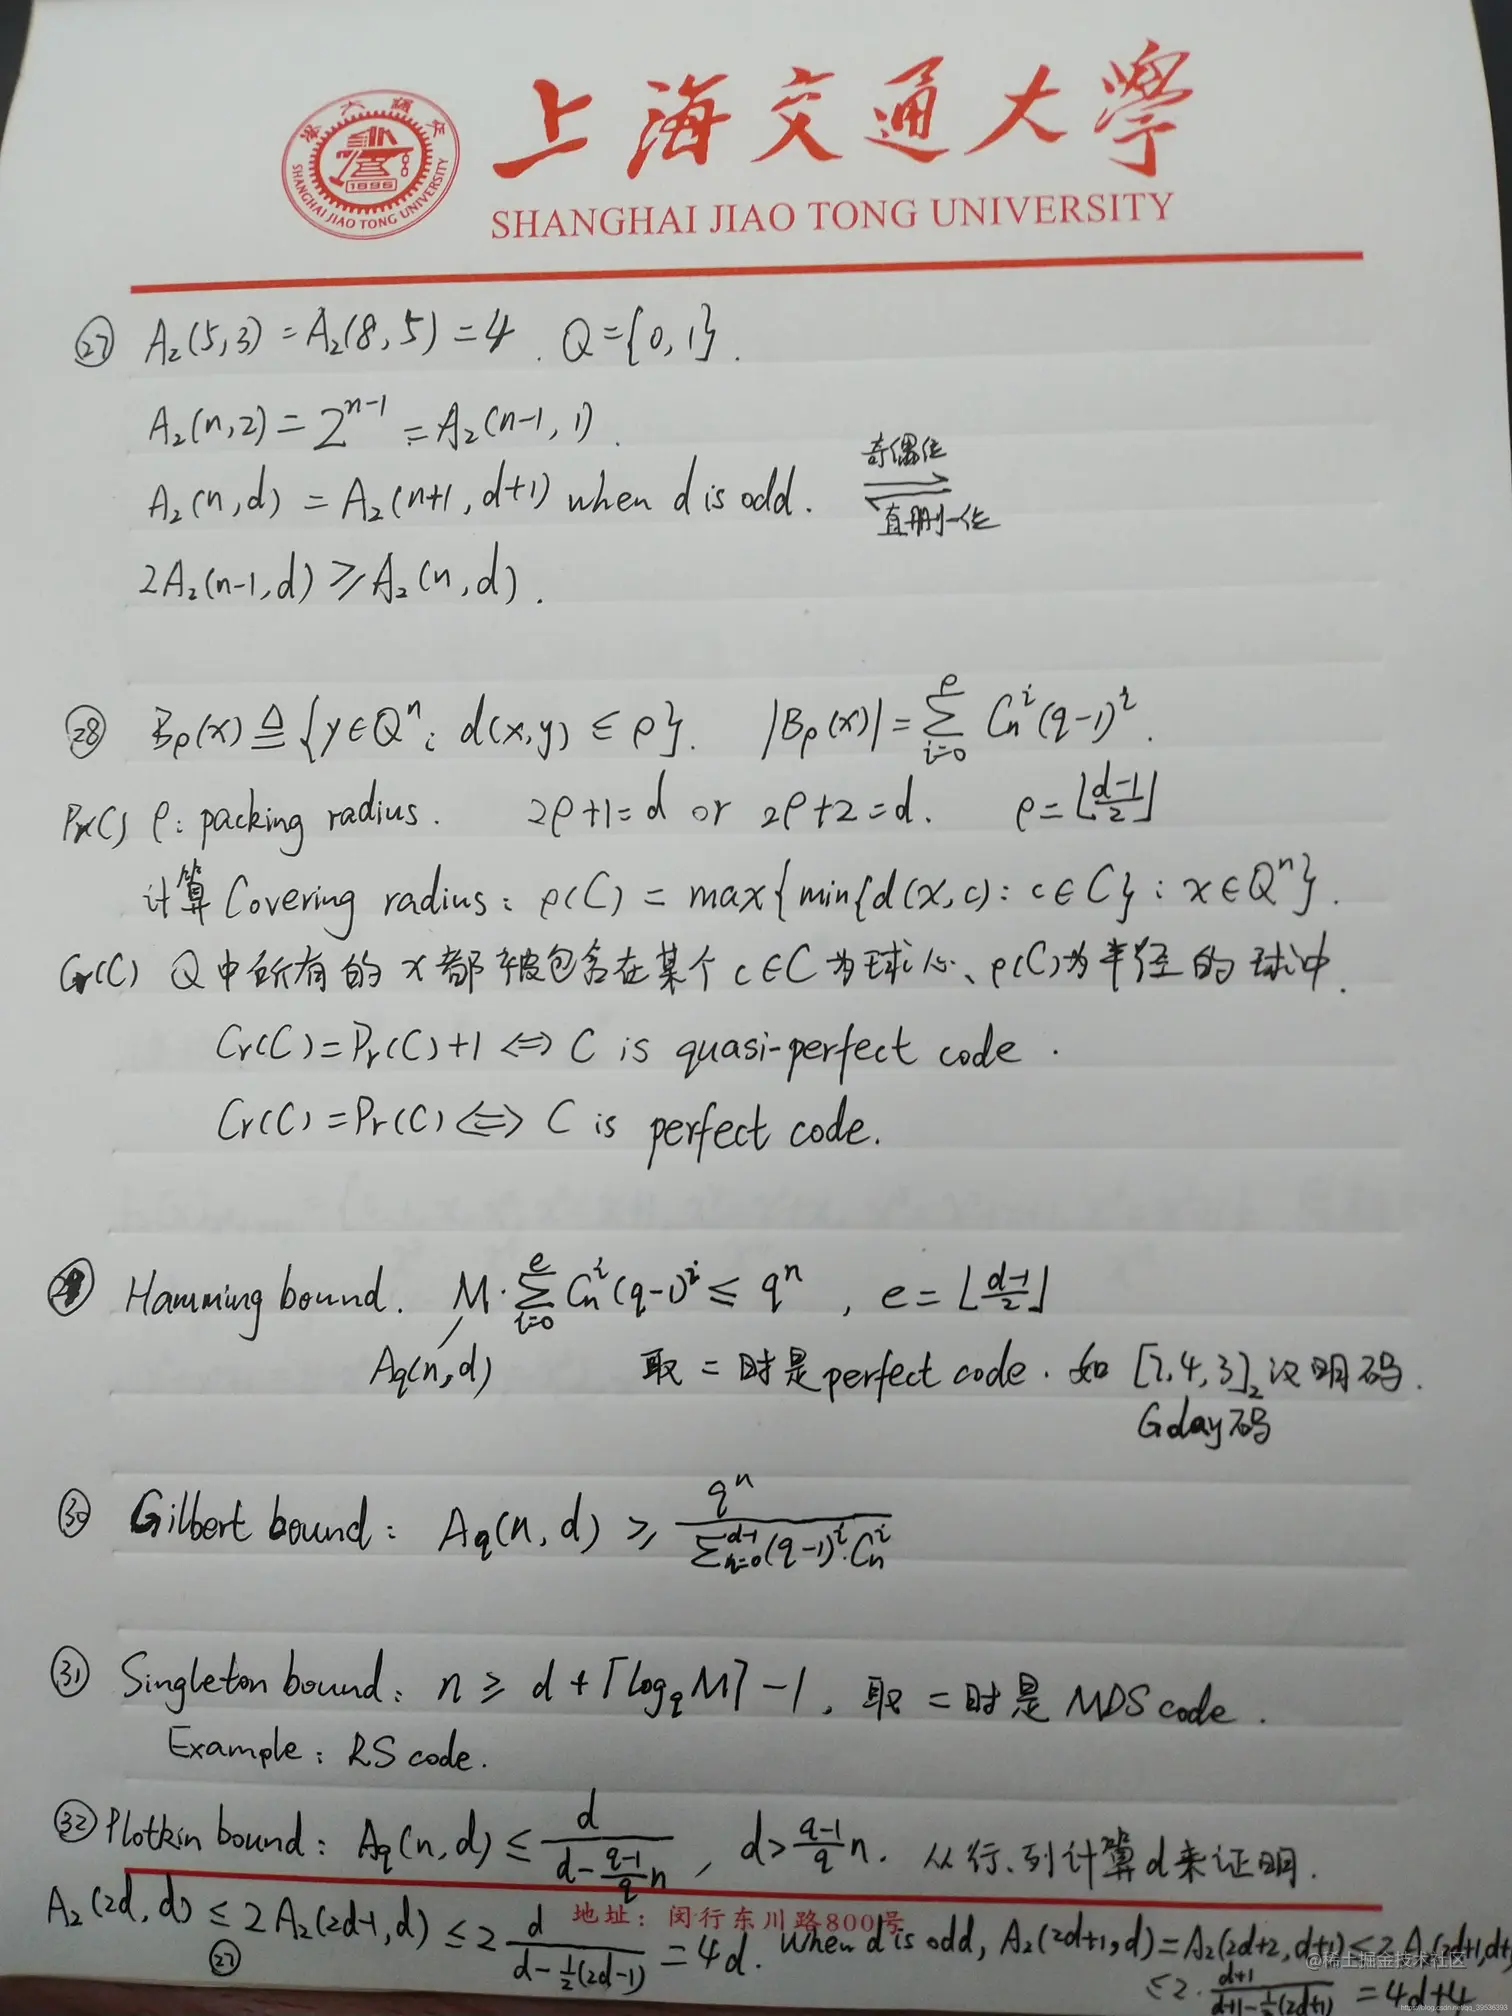 上海交通大学
SHANGHAI JIAO TONG UNIVERSITY
1896
SHANGHAI JIAO TONG UNIVERSITY
㉗ A₂(5,3) = A₂(8,5) = 4 . Q = {0,1} .
A₂(n,2) = 2ⁿ⁻¹ = A₂(n-1, 1) .
A₂(n,d) = A₂(n+1, d+1) when d is odd. 奇偶位 ⇌ 直删一位
2A₂(n-1,d) ≥ A₂(n,d) .
㉘ Bρ(x) ≜ {y∈Qⁿ; d(x,y) ≤ ρ}. |Bρ(x)| = ∑_{i=0}^{ρ} C_n^i (q-1)^i .
Pr(C) ρ: packing radius. 2ρ+1=d or 2ρ+2=d. ρ=⌊(d-1)/2⌋
计算 Covering radius: ρ(C) = max{min{d(x,c): c∈C} : x∈Qⁿ}.
Cr(C) Q中所有的x都被包含在某个c∈C为球心、ρ(C)为半径的球中.
Cr(C)=Pr(C)+1 ⇔ C is quasi-perfect code .
Cr(C)=Pr(C) ⇔ C is perfect code.
㉙ Hamming bound. M·∑_{i=0}^{e} C_n^i (q-1)^i ≤ qⁿ , e=⌊(d-1)/2⌋
Aq(n,d) 取 = 时是 perfect code . 如 [7,4,3]₂ 汉明码.
Golay码
㉚ Gilbert bound: Aq(n,d) ≥ qⁿ / ∑_{n=0}^{d-1} (q-1)^i·C_n^i
㉛ Singleton bound: n ≥ d + ⌈log_q M⌉ - 1, 取 = 时是 MDS code .
Example: RS code.
㉜ Plotkin bound: Aq(n,d) ≤ d / (d - (q-1)/q n) , d > (q-1)/q n. 从行、列计算d来证明.
地址: 闵行东川路800号
A₂(2d,d) ≤ 2A₂(2d-1,d) ≤ 2 d / (d - ½(2d-1)) = 4d. When d is odd, A₂(2d+1,d) = A₂(2d+2,d+1) ≤ 2A₂(2d+1,d+
㉗
≤ 2· (d+1) / (d+1 - ½(2d+1)) = 4d+4
@稀土掘金技术社区